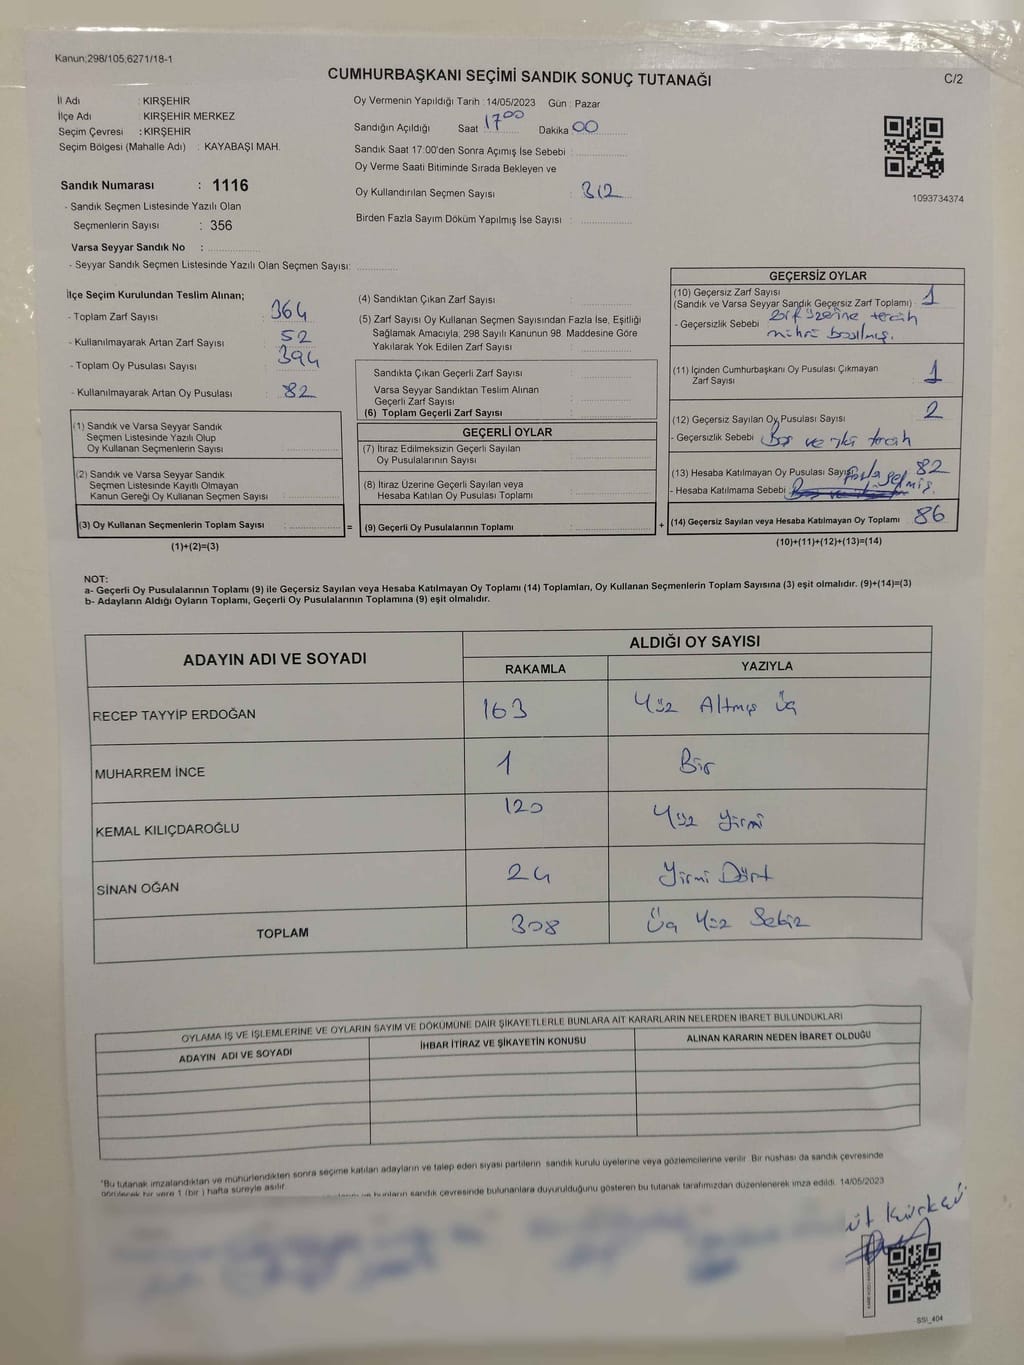 Kanun:298/105;6271/18-1
CUMHURBAŞKANI SEÇİMİ SANDIK SONUÇ TUTANAĞI
C/2
İl Adı : KIRŞEHİR
İlçe Adı : KIRŞEHİR MERKEZ
Seçim Çevresi : KIRŞEHİR
Seçim Bölgesi (Mahalle Adı) : KAYABAŞI MAH.
Oy Vermenin Yapıldığı Tarih : 14/05/2023 Gün : Pazar
Sandığın Açıldığı Saat 17 00 Dakika 00
Sandık Saat 17:00'den Sonra Açımış İse Sebebi :
Oy Verme Saati Bitiminde Sırada Bekleyen ve
Oy Kullandırılan Seçmen Sayısı : 312
Birden Fazla Sayım Döküm Yapılmış İse Sayısı :
1093734374
Sandık Numarası : 1116
- Sandık Seçmen Listesinde Yazılı Olan
Seçmenlerin Sayısı : 356
Varsa Seyyar Sandık No :
- Seyyar Sandık Seçmen Listesinde Yazılı Olan Seçmen Sayısı:
İlçe Seçim Kurulundan Teslim Alınan;
- Toplam Zarf Sayısı : 364
- Kullanılmayarak Artan Zarf Sayısı : 52
- Toplam Oy Pusulası Sayısı : 394
- Kullanılmayarak Artan Oy Pusulası : 82
(1) Sandık ve Varsa Seyyar Sandık
Seçmen Listesinde Yazılı Olup
Oy Kullanan Seçmenlerin Sayısı
(2) Sandık ve Varsa Seyyar Sandık
Seçmen Listesinde Kayıtlı Olmayan
Kanun Gereği Oy Kullanan Seçmen Sayısı :
(3) Oy Kullanan Seçmenlerin Toplam Sayısı :
(1)+(2)=(3)
=
(4) Sandıktan Çıkan Zarf Sayısı :
(5) Zarf Sayısı Oy Kullanan Seçmen Sayısından Fazla İse, Eşitliği
Sağlamak Amacıyla; 298 Sayılı Kanunun 98. Maddesine Göre
Yakılarak Yok Edilen Zarf Sayısı :
Sandıkta Çıkan Geçerli Zarf Sayısı :
Varsa Seyyar Sandıktan Teslim Alınan
Geçerli Zarf Sayısı :
(6) Toplam Geçerli Zarf Sayısı :
GEÇERLİ OYLAR
(7) İtiraz Edilmeksizin Geçerli Sayılan
Oy Pusulalarının Sayısı :
(8) İtiraz Üzerine Geçerli Sayılan veya
Hesaba Katılan Oy Pusulası Toplamı :
(9) Geçerli Oy Pusulalarının Toplamı :
+
GEÇERSİZ OYLAR
(10) Geçersiz Zarf Sayısı
(Sandık ve Varsa Seyyar Sandık Geçersiz Zarf Toplamı) : 1
- Geçersizlik Sebebi : üzerine tercih
mührü basılmış.
(11) İçinden Cumhurbaşkanı Oy Pusulası Çıkmayan
Zarf Sayısı : 1
(12) Geçersiz Sayılan Oy Pusulası Sayısı : 2
- Geçersizlik Sebebi : Boş ve iki tercih
(13) Hesaba Katılmayan Oy Pusulası Sayısı 82
- Hesaba Katılmama Sebebi : Fazla gelmiş.
(14) Geçersiz Sayılan veya Hesaba Katılmayan Oy Toplamı : 86
(10)+(11)+(12)+(13)=(14)
NOT:
a- Geçerli Oy Pusulalarının Toplamı (9) ile Geçersiz Sayılan veya Hesaba Katılmayan Oy Toplamı (14) Toplamları, Oy Kullanan Seçmenlerin Toplam Sayısına (3) eşit olmalıdır. (9)+(14)=(3)
b- Adayların Aldığı Oyların Toplamı, Geçerli Oy Pusulalarının Toplamına (9) eşit olmalıdır.
ADAYIN ADI VE SOYADI
ALDIĞI OY SAYISI
RAKAMLA YAZIYLA
RECEP TAYYİP ERDOĞAN 163 Yüz Altmış Üç
MUHARREM İNCE 1 Bir
KEMAL KILIÇDAROĞLU 120 Yüz Yirmi
SİNAN OĞAN 24 Yirmi Dört
TOPLAM 308 Üç Yüz Sekiz
OYLAMA İŞ VE İŞLEMLERİNE VE OYLARIN SAYIM VE DÖKÜMÜNE DAİR ŞİKAYETLERLE BUNLARA AİT KARARLARIN NELERDEN İBARET BULUNDUKLARI
ADAYIN ADI VE SOYADI İHBAR İTİRAZ VE ŞİKAYETİN KONUSU ALINAN KARARIN NEDEN İBARET OLDUĞU
*Bu tutanak imzalandıktan ve mühürlendikten sonra seçime katılan adayların ve talep eden siyasi partilerin sandık kurulu üyelerine veya gözlemcilerine verilir. Bir nüshası da sandık çevresinde
görülecek bir yere 1 (bir) hafta süreyle asılır.
bunların sandık çevresinde bulunanlara duyurulduğunu gösteren bu tutanak tarafımızdan düzenlenerek imza edildi. 14/05/2023
SSI_404